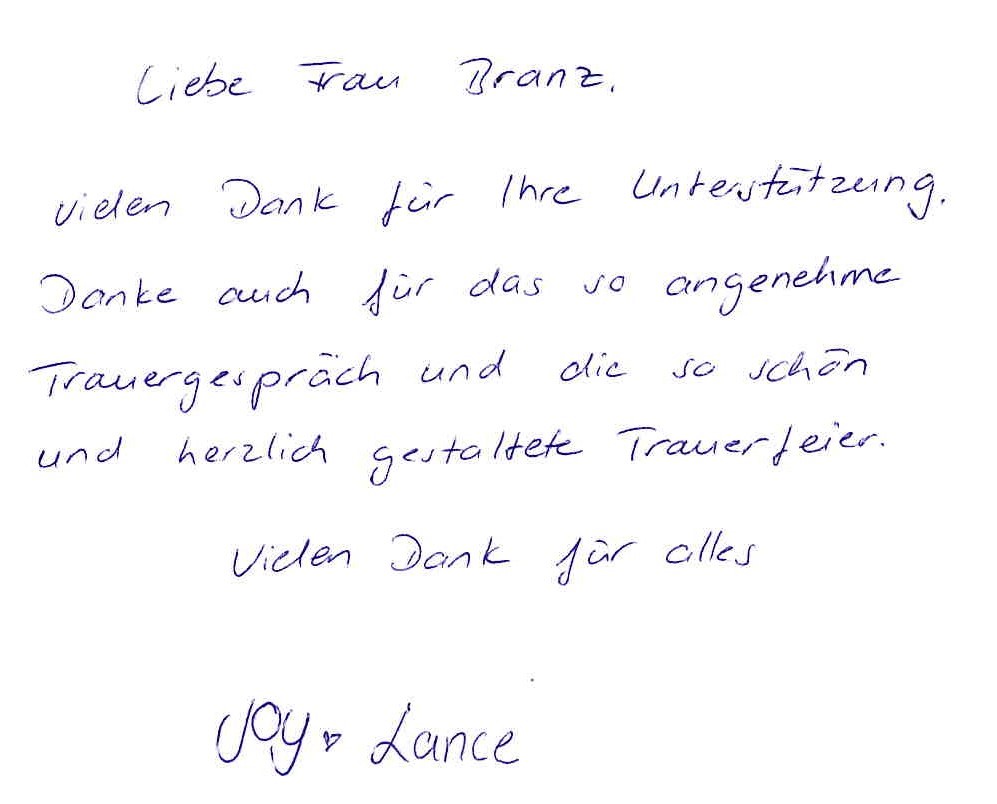 Liebe Frau Branz.
vielen Dank für Ihre Unterstützung.
Danke auch für das so angenehme
Trauergespräch und die so schön
und herzlich gestaltete Trauerfeier.
Vielen Dank für alles
Joy ♥ Lance